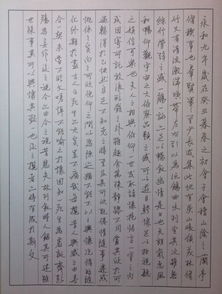 永和九年歲在癸丑暮春之初會于會稽山陰之蘭亭
脩禊事也羣賢畢至少長咸集此地有崇山峻領茂林脩
竹又有清流激湍暎帶左右引以為流觴曲水列坐其次雖無
絲竹管弦之盛一觴一詠亦足以暢敘幽情是日也天朗氣清惠風
和暢仰觀宇宙之大俯察品類之盛所以遊目騁懷足以極視聽
之娛信可樂也夫人之相與俯仰一世或取諸懷抱悟言一室之內
或因寄所託放浪形骸之外雖趣舍萬殊靜躁不同當其欣於所
遇暫得於己快然自足不知老之將至及其所之既惓情隨事遷感
慨係之矣向之所欣俛仰之間以為陳迹猶不能不以之興懷況脩短隨
化終期於盡古人云死生亦大矣豈不痛哉每攬昔人興感之由若
合一契未嘗不臨文嗟悼不能喻之於懷固知一死生為虛誕齊彭
殤為妄作後之視今亦由今之視昔悲夫故列敘時人錄其所述雖
世殊事異所以興懷其致一也後之攬者亦將有感於斯文